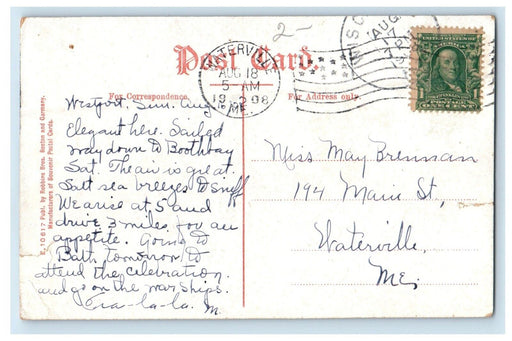 2-
Post Card.
WATERVILLE
AUG 18
5 - AM
1908
ME.
WISC
AUG
17
PM
For Correspondence.
For Address only.
E. 10617 Publ. by Robbins Bros. Boston and Germany.
Manufacturers of Souvenir Postal Cards.
Westport. Sun. Aug
Elegant here. Sailed
way down to Boothbay
Sat. The air is great.
Salt sea breezes to sniff
We arise at 5 and
drive 3 miles for an
appetite. Going to
Bath tomorrow to
attend the celebration.
and go on the war ships.
Tra-la-la. M.
Miss May Brennan
194 Main St,
Waterville,
Me.
1